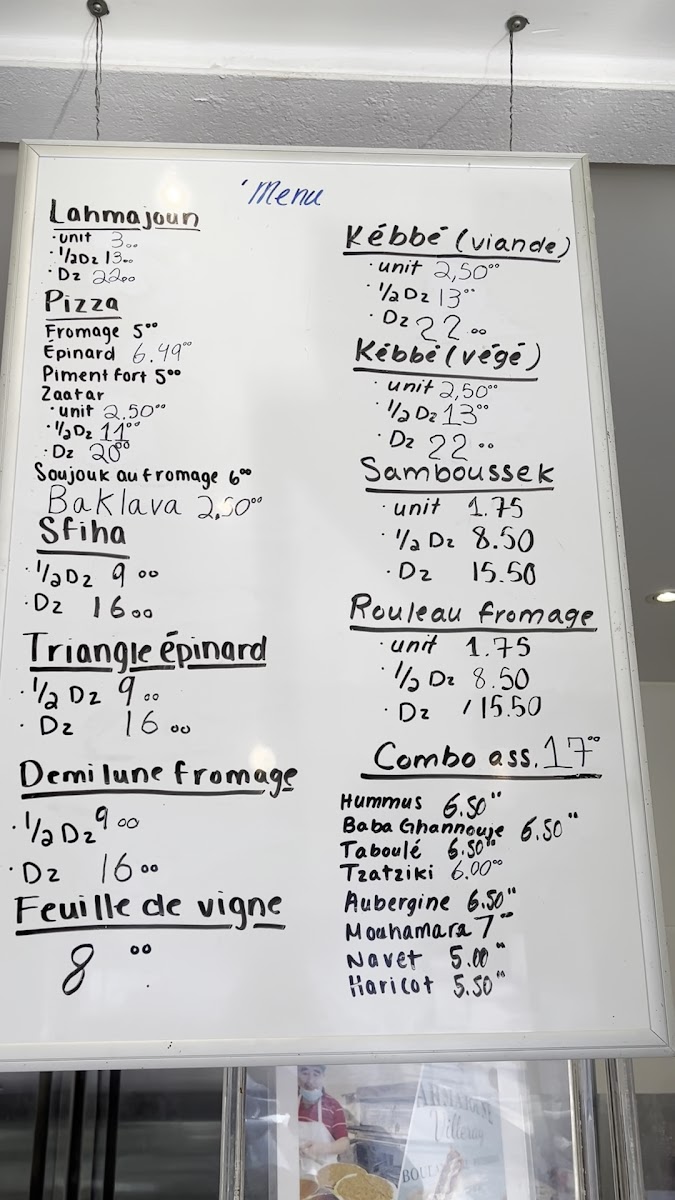 Menu
Lahmajoun
· unit 3.00
· 1/2 Dz 13.00
· Dz 22.00
Pizza
Fromage 5 00
Épinard 6.49 00
Piment fort 5 00
Zaatar
· unit 2.50 00
· 1/2 Dz 11 00
· Dz 20 00
Soujouk au fromage 6 00
Baklava 2,50 00
Sfiha
· 1/2 Dz 9 00
· Dz 16 00
Triangle épinard
· 1/2 Dz 9 00
· Dz 16 00
Demi lune fromage
· 1/2 Dz 9 00
· Dz 16 00
Feuille de vigne
8 00
Kébbé (viande)
· unit 2,50 00
· 1/2 Dz 13 00
· Dz 22.00
Kébbé (végé)
· unit 2,50 00
· 1/2 Dz 13 00
· Dz 22 00
Samboussek
· unit 1.75
· 1/2 Dz 8.50
· Dz 15.50
Rouleau fromage
· unit 1.75
· 1/2 Dz 8.50
· Dz 15.50
Combo ass. 17 00
Hummus 6.50"
Baba Ghannouje 6.50"
Taboulé 6.50"
Tzatziki 6.00 00
Aubergine 6.50"
Mouhamara 7"
Navet 5.00"
Haricot 5.50"
Villeray